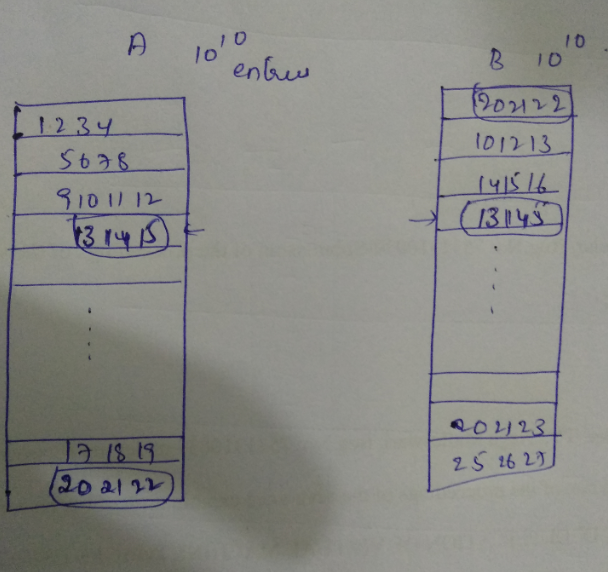 A 10^10
entries
B 10^10
1 2 3 4
5 6 7 8
9 10 11 12
13 14 15
17 18 19
20 21 22
20 21 22
10 12 13
14 15 16
13 14 15
20 21 23
25 26 27